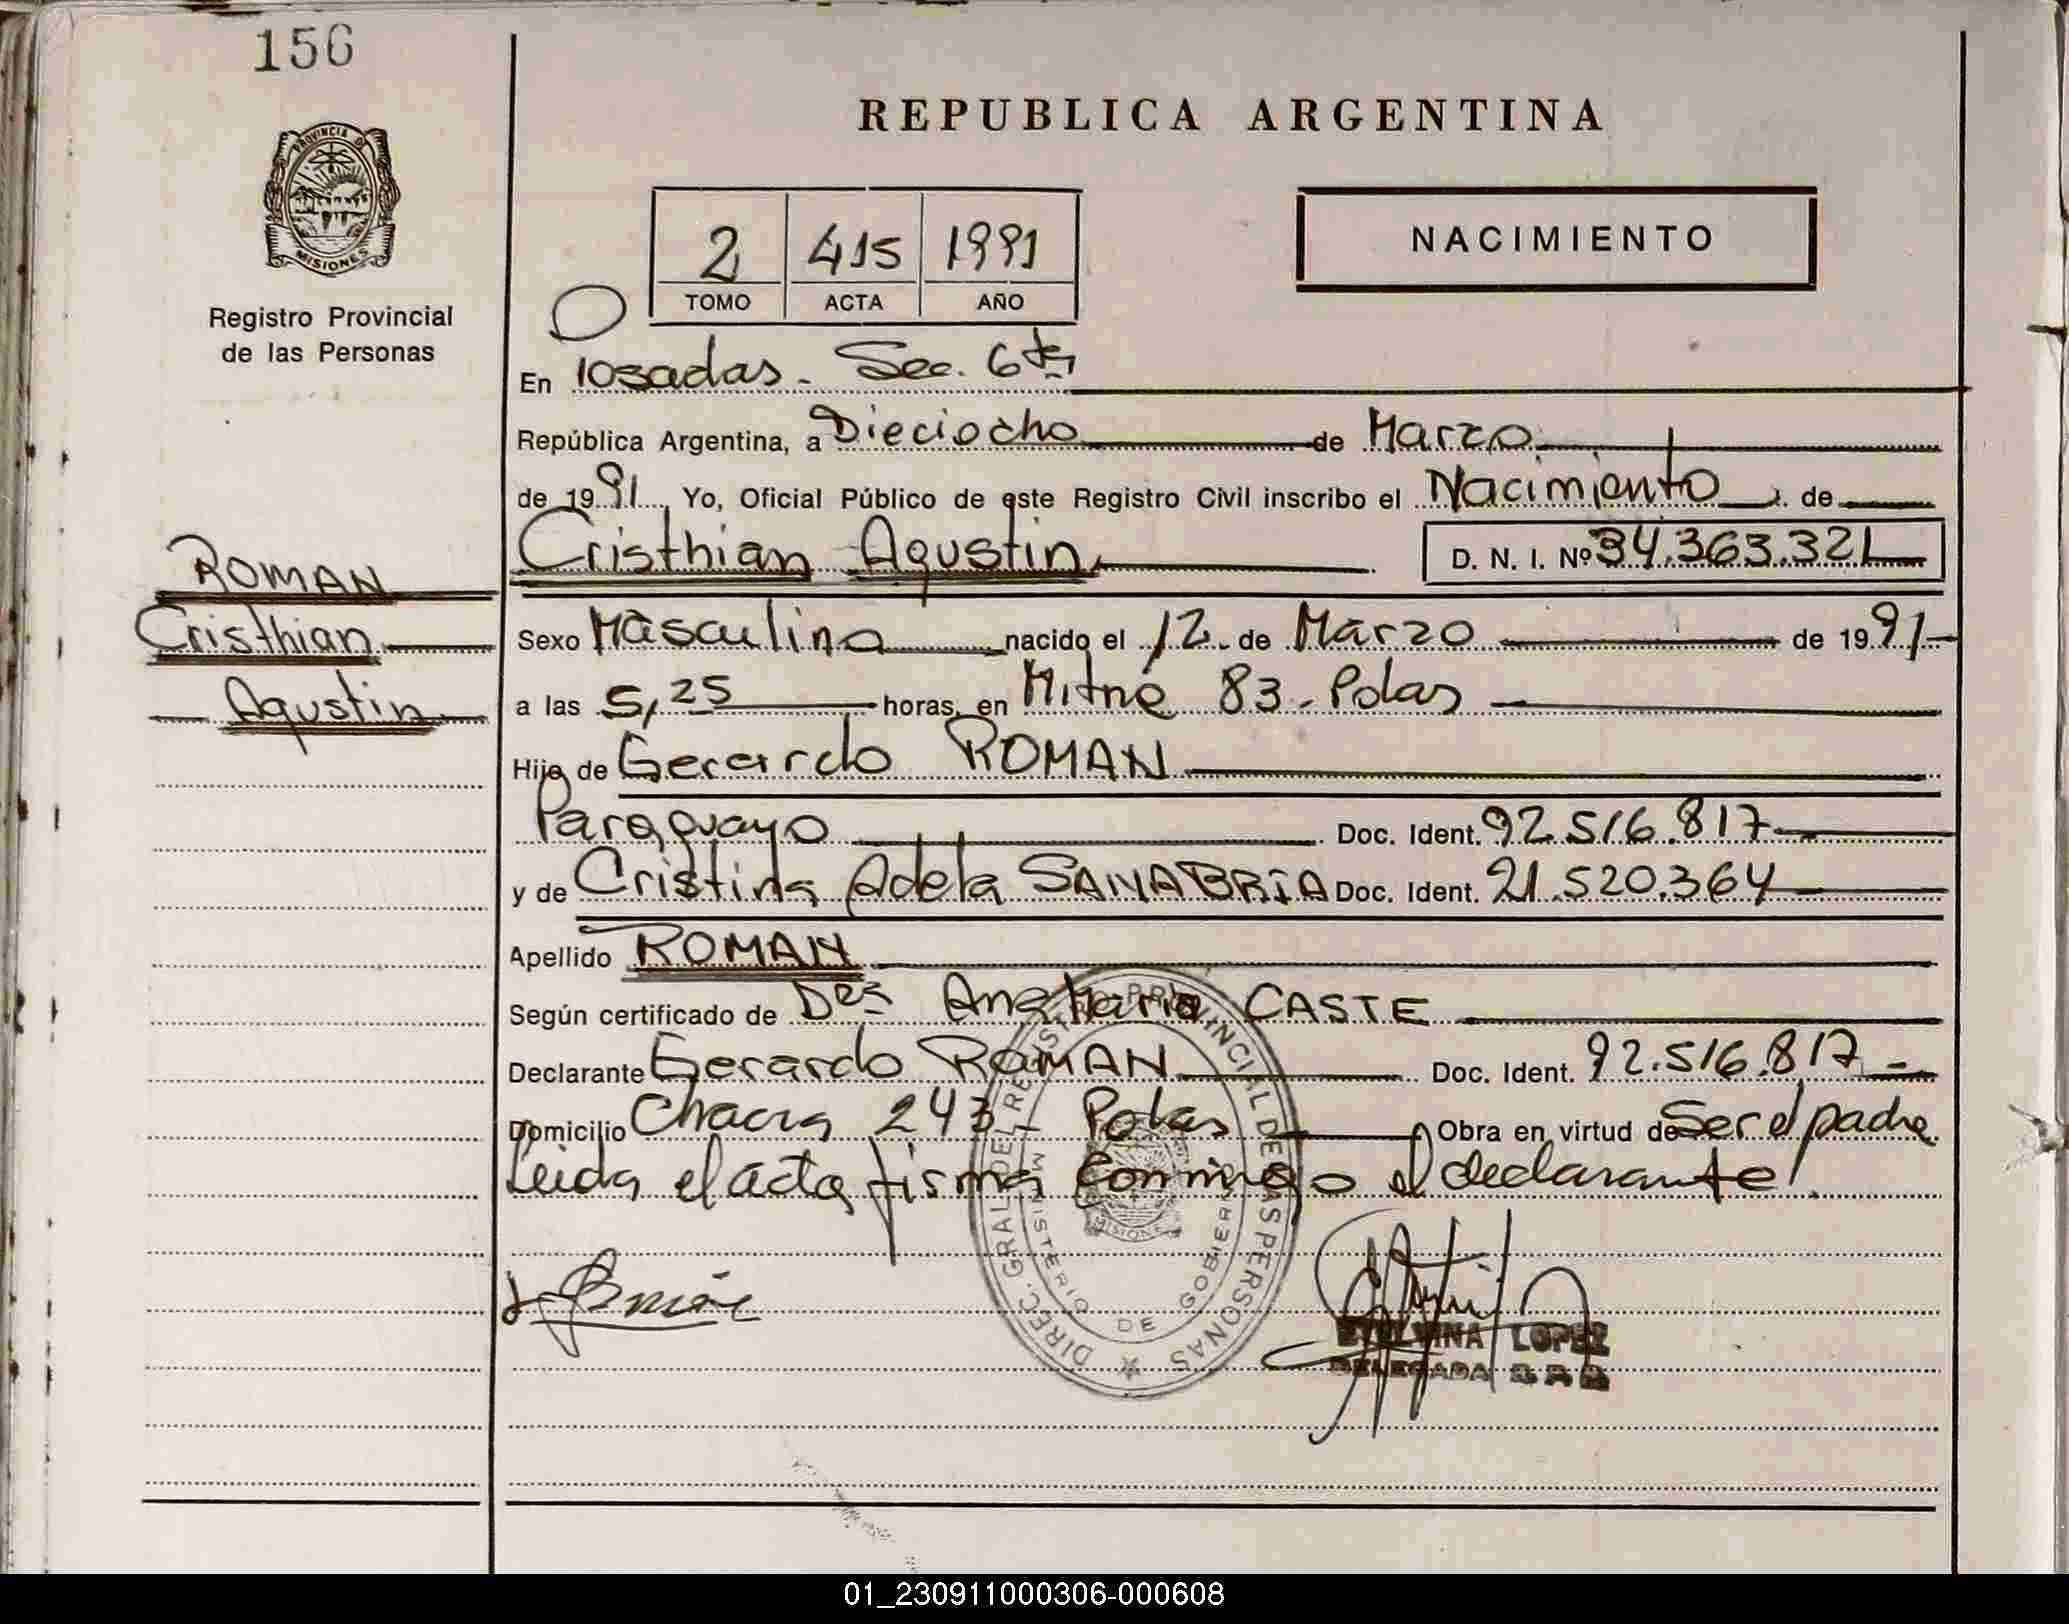 156
PROVINCIA DE
MISIONES
Registro Provincial
de las Personas
REPUBLICA ARGENTINA
2 415 1991
TOMO ACTA AÑO
NACIMIENTO
En Posadas. Sec. 6ta
República Argentina, a Dieciocho de Marzo
de 1991 Yo, Oficial Público de este Registro Civil inscribo el Nacimiento de
Cristhian Agustin D. N. I. Nº 34.363.321
ROMAN
Cristhian
Agustin
Sexo Masculino nacido el 12 de Marzo de 1991
a las 5,25 horas, en Mitre 83 - Pdas
Hijo de Gerardo ROMAN
Paraguayo Doc. Ident. 92.516.817
y de Cristina Adela SANABRIA Doc. Ident. 21.520.364
Apellido ROMAN
Según certificado de Dra Ana Maria CASTE
Declarante Gerardo ROMAN Doc. Ident. 92.516.817
Domicilio Chacra 243 - Pdas Obra en virtud de Ser el padre
Leida el acta firma conmigo el declarante
DIREC. GRAL. DEL REGISTRO PROVINCIAL DE LAS PERSONAS
MINISTERIO DE GOBIERNO
MISIONES
LOPEZ
DELEGADA
01_230911000306-000608